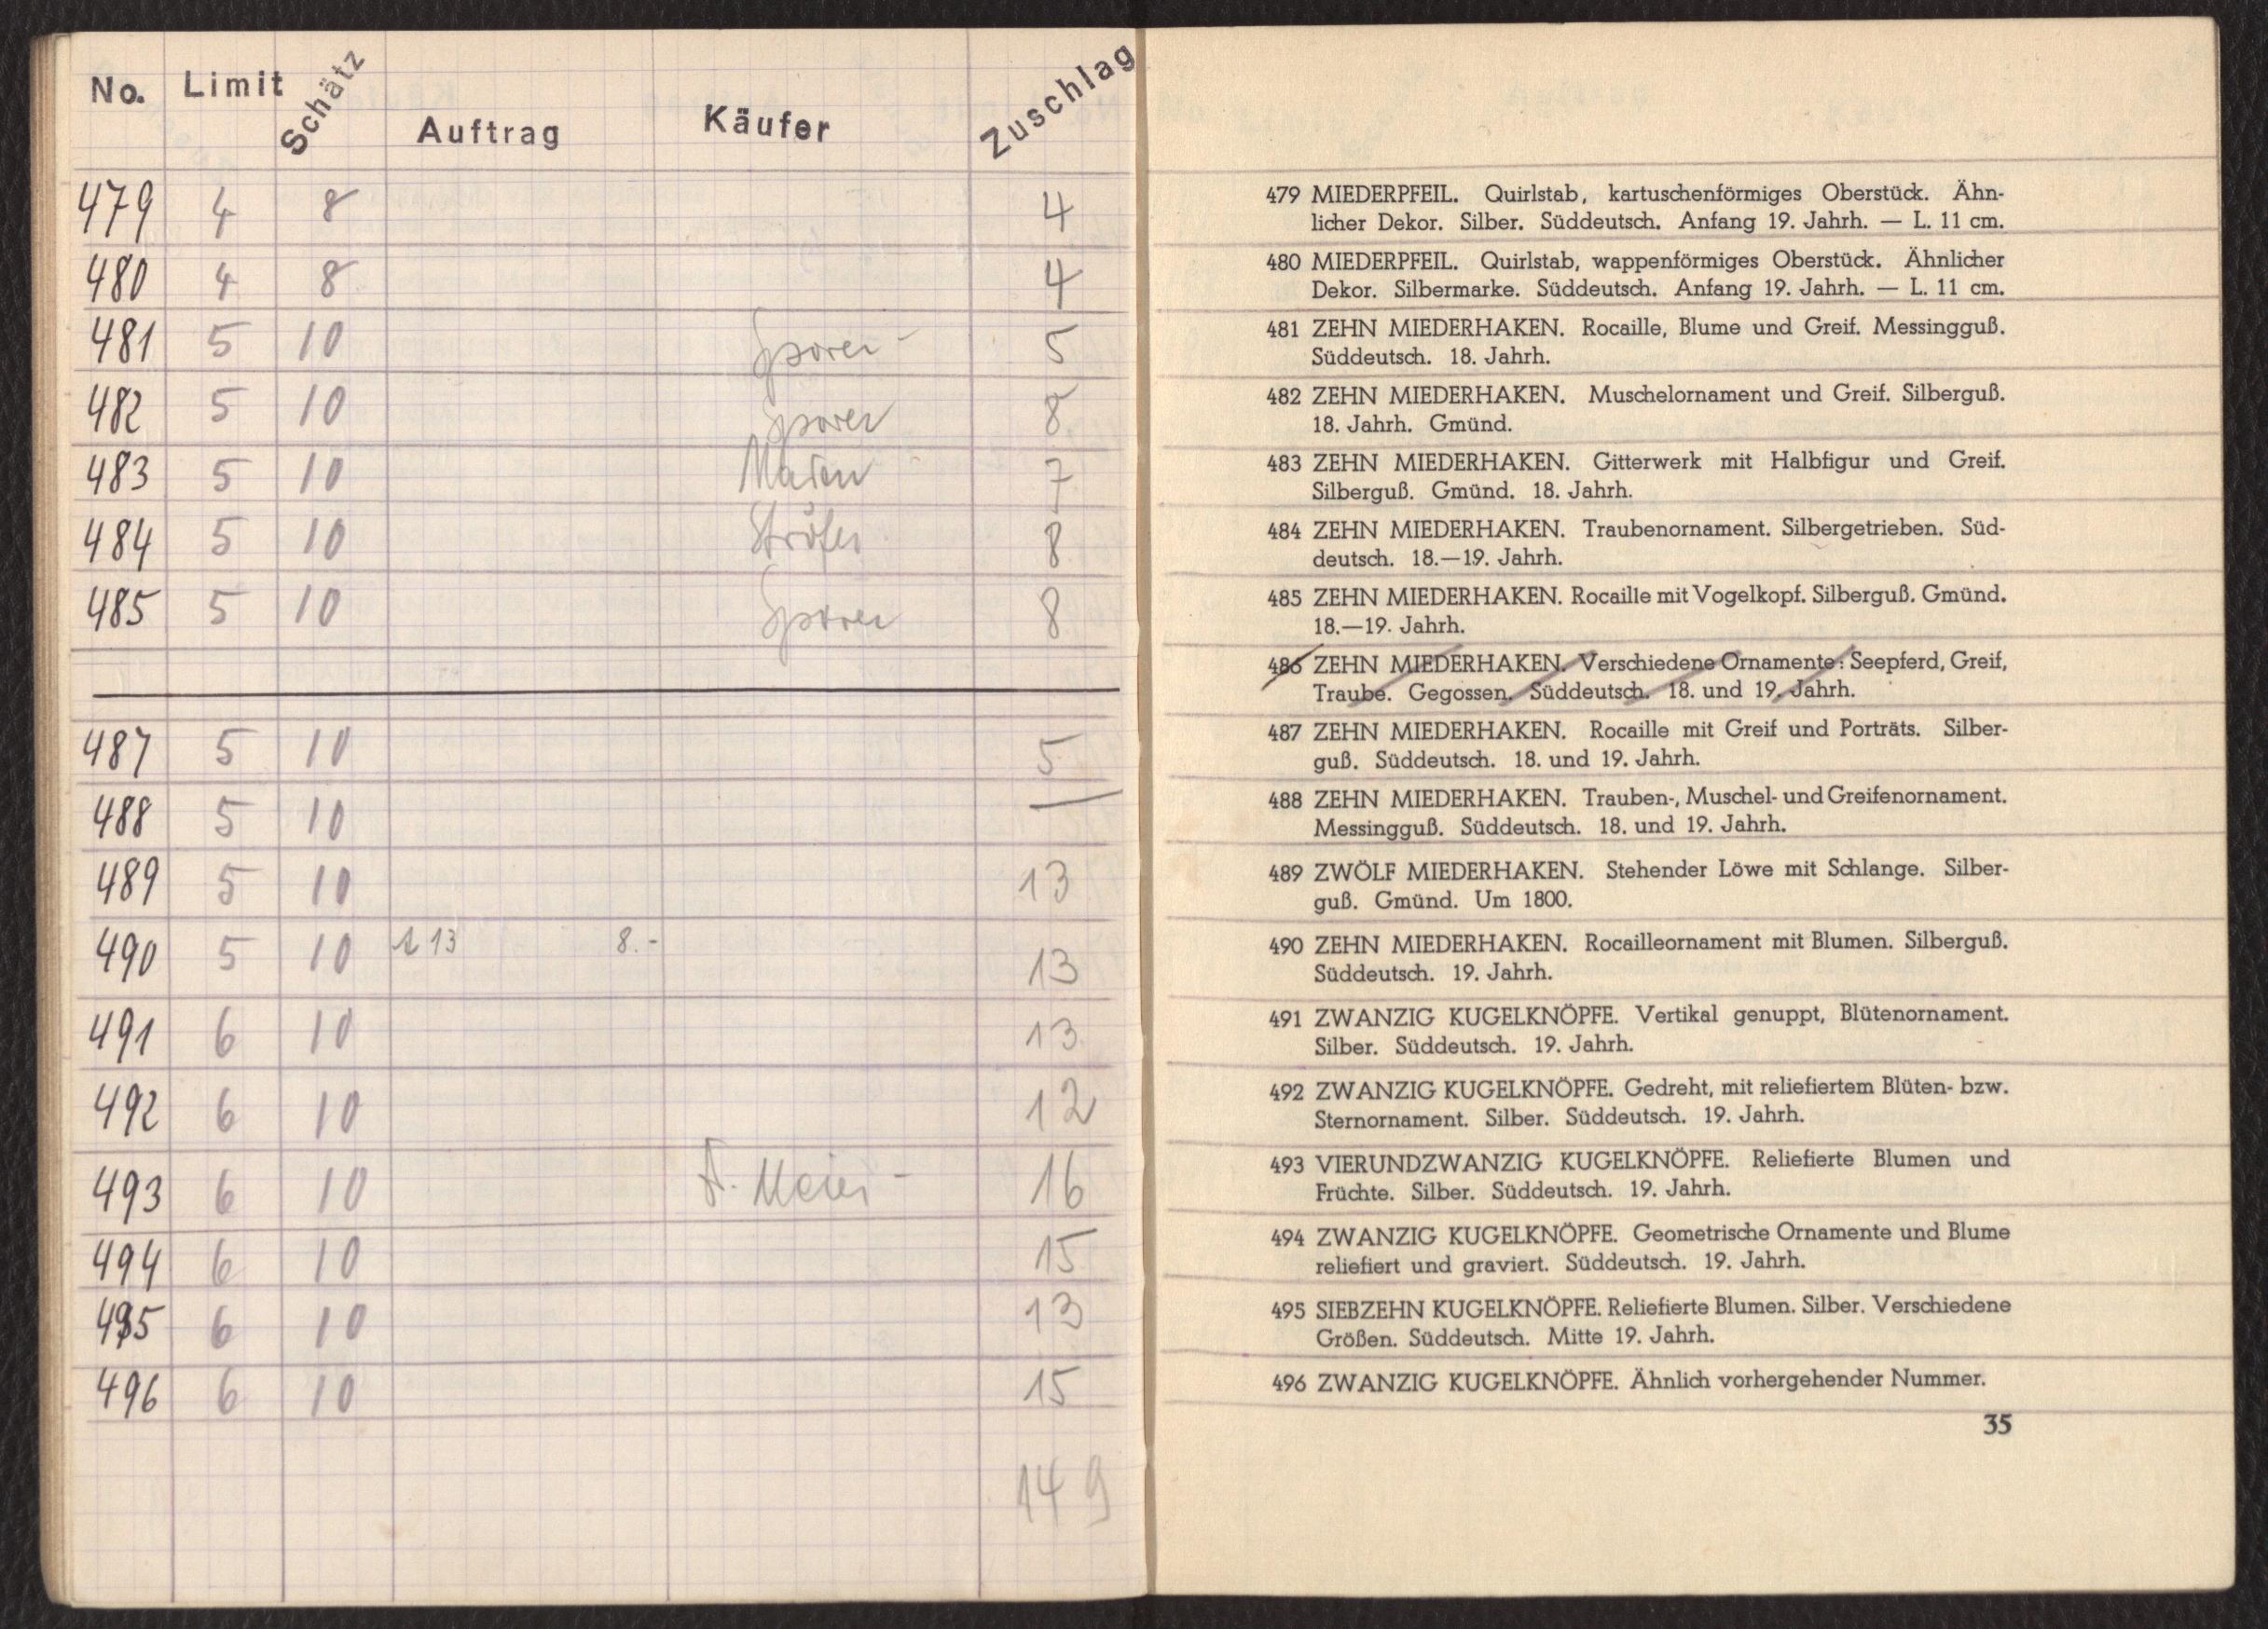 No. Limit Schätz Auftrag Käufer Zuschlag
479 4 8 4
480 4 8 4
481 5 10 Sporer - 5
482 5 10 Sporer 8
483 5 10 7
484 5 10 8
485 5 10 Sporer 8
487 5 10 5
488 5 10 —
489 5 10 13
490 5 10 13 8.- 13
491 6 10 13
492 6 10 12
493 6 10 A. Meier - 16
494 6 10 15
495 6 10 13
496 6 10 15
149
479 MIEDERPFEIL. Quirlstab, kartuschenförmiges Oberstück. Ähn-
licher Dekor. Silber. Süddeutsch. Anfang 19. Jahrh. — L. 11 cm.
480 MIEDERPFEIL. Quirlstab, wappenförmiges Oberstück. Ähnlicher
Dekor. Silbermarke. Süddeutsch. Anfang 19. Jahrh. — L. 11 cm.
481 ZEHN MIEDERHAKEN. Rocaille, Blume und Greif. Messingguß.
Süddeutsch. 18. Jahrh.
482 ZEHN MIEDERHAKEN. Muschelornament und Greif. Silberguß.
18. Jahrh. Gmünd.
483 ZEHN MIEDERHAKEN. Gitterwerk mit Halbfigur und Greif.
Silberguß. Gmünd. 18. Jahrh.
484 ZEHN MIEDERHAKEN. Traubenornament. Silbergetrieben. Süd-
deutsch. 18.—19. Jahrh.
485 ZEHN MIEDERHAKEN. Rocaille mit Vogelkopf. Silberguß. Gmünd.
18.—19. Jahrh.
486 ZEHN MIEDERHAKEN. Verschiedene Ornamente: Seepferd, Greif,
Traube. Gegossen. Süddeutsch. 18. und 19. Jahrh.
487 ZEHN MIEDERHAKEN. Rocaille mit Greif und Porträts. Silber-
guß. Süddeutsch. 18. und 19. Jahrh.
488 ZEHN MIEDERHAKEN. Trauben-, Muschel- und Greifenornament.
Messingguß. Süddeutsch. 18. und 19. Jahrh.
489 ZWÖLF MIEDERHAKEN. Stehender Löwe mit Schlange. Silber-
guß. Gmünd. Um 1800.
490 ZEHN MIEDERHAKEN. Rocailleornament mit Blumen. Silberguß.
Süddeutsch. 19. Jahrh.
491 ZWANZIG KUGELKNÖPFE. Vertikal genuppt, Blütenornament.
Silber. Süddeutsch. 19. Jahrh.
492 ZWANZIG KUGELKNÖPFE. Gedreht, mit reliefiertem Blüten- bzw.
Sternornament. Silber. Süddeutsch. 19. Jahrh.
493 VIERUNDZWANZIG KUGELKNÖPFE. Reliefierte Blumen und
Früchte. Silber. Süddeutsch. 19. Jahrh.
494 ZWANZIG KUGELKNÖPFE. Geometrische Ornamente und Blume
reliefiert und graviert. Süddeutsch. 19. Jahrh.
495 SIEBZEHN KUGELKNÖPFE. Reliefierte Blumen. Silber. Verschiedene
Größen. Süddeutsch. Mitte 19. Jahrh.
496 ZWANZIG KUGELKNÖPFE. Ähnlich vorhergehender Nummer.
35